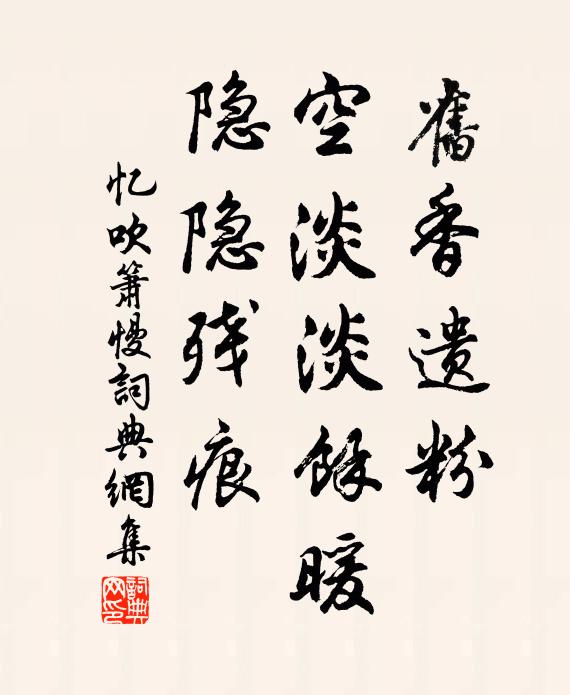 舊香遺粉
空淡淡餘暖
隐隐残痕
忆吹箫慢詞典網集
詞典网印